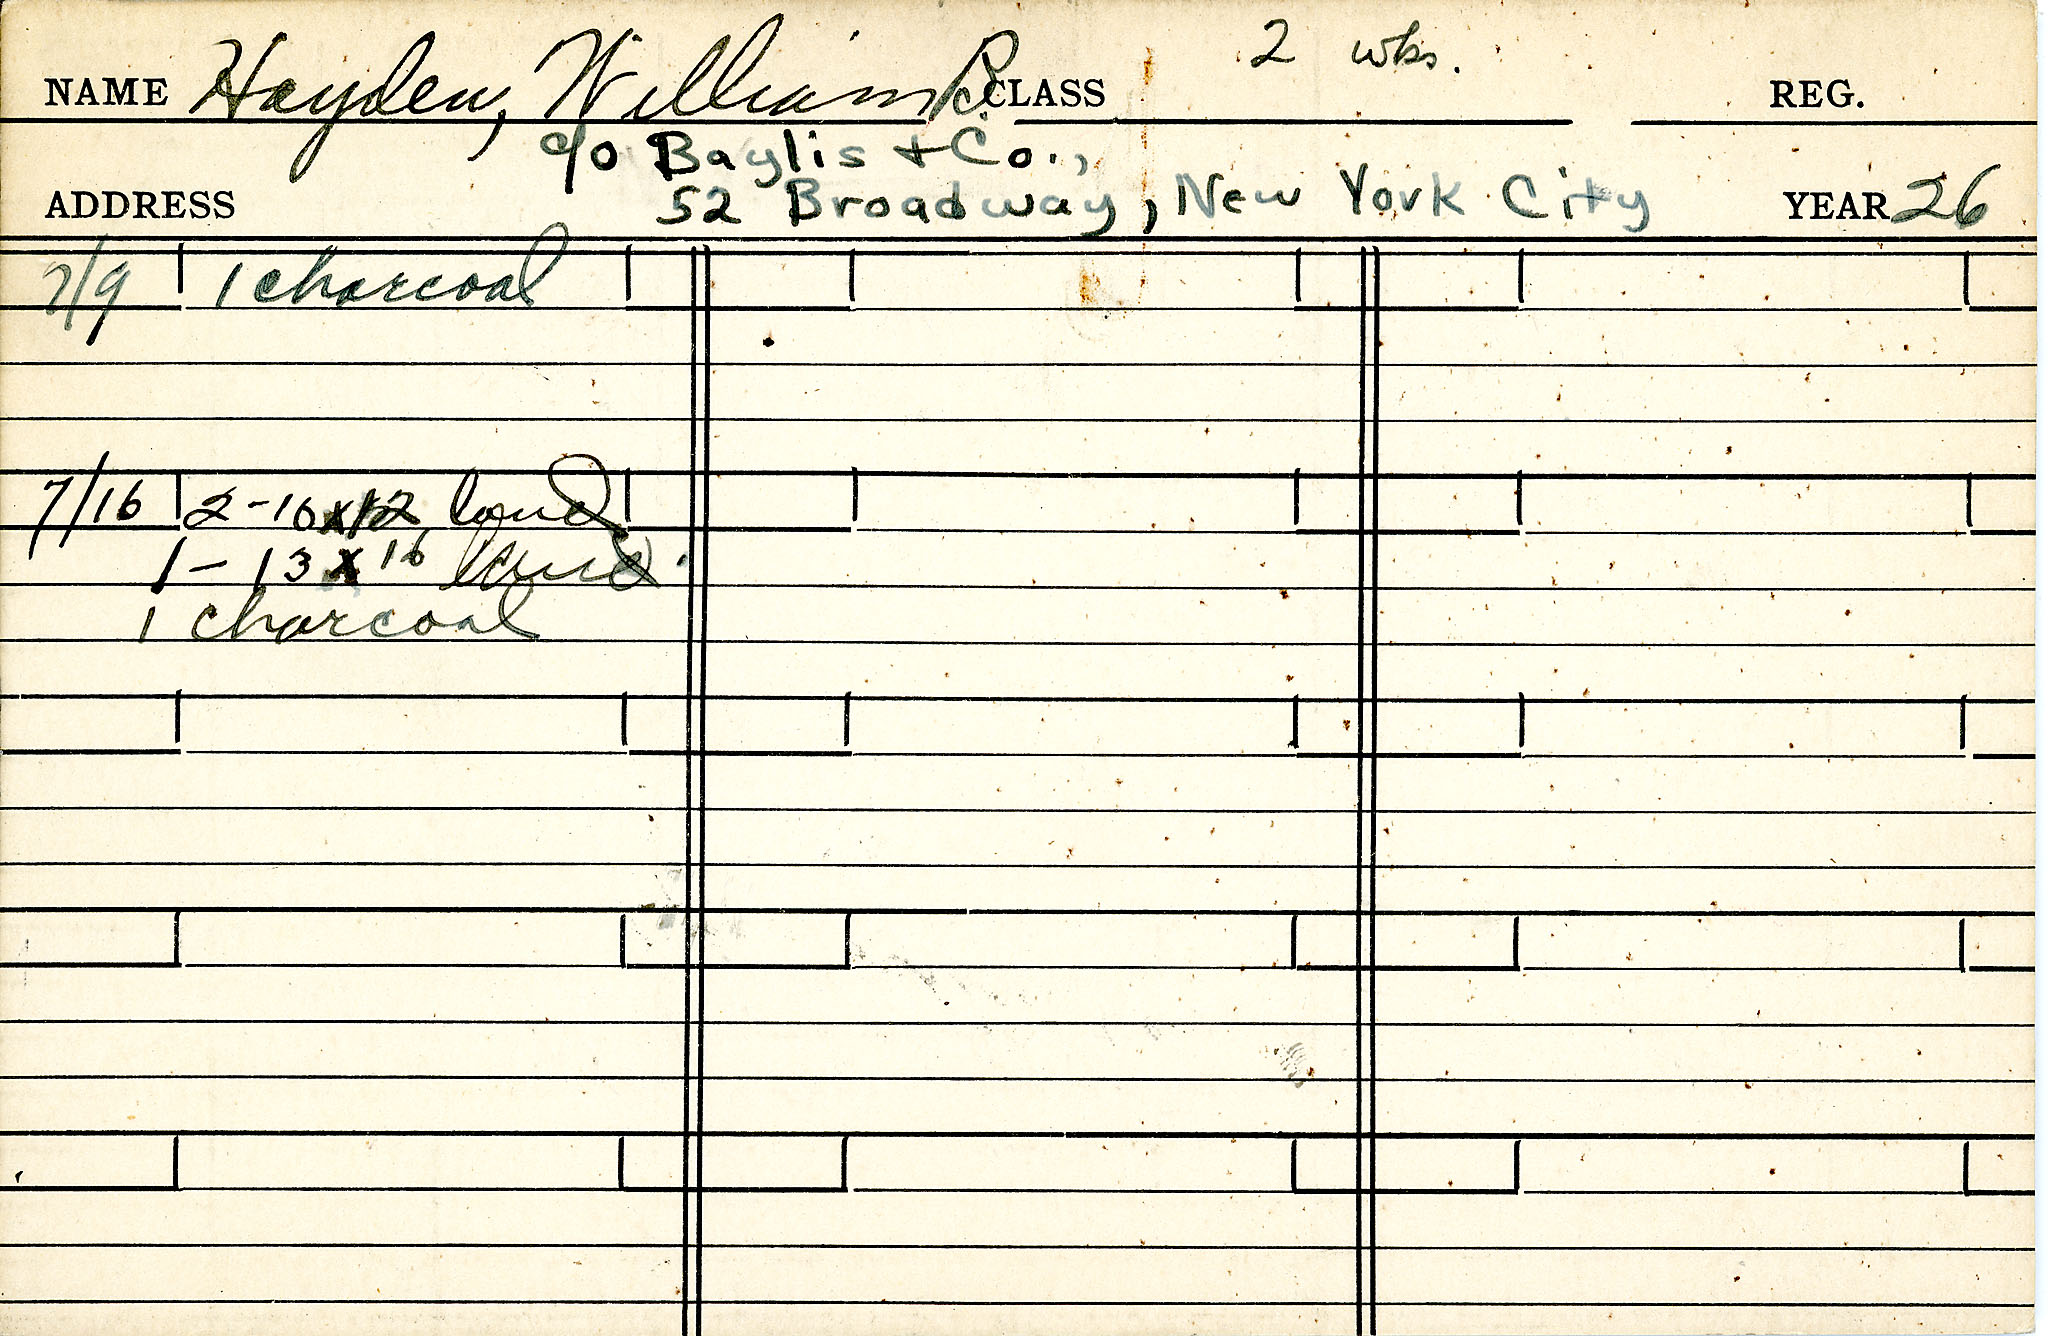 NAME Hayden, William R. CLASS 2 wks. REG.
c/o Baylis + Co.,
ADDRESS 52 Broadway, New York City YEAR 26
7/9 1 charcoal
7/16 2 - 10 x 12 land
1 - 13 x 16 land.
1 charcoal